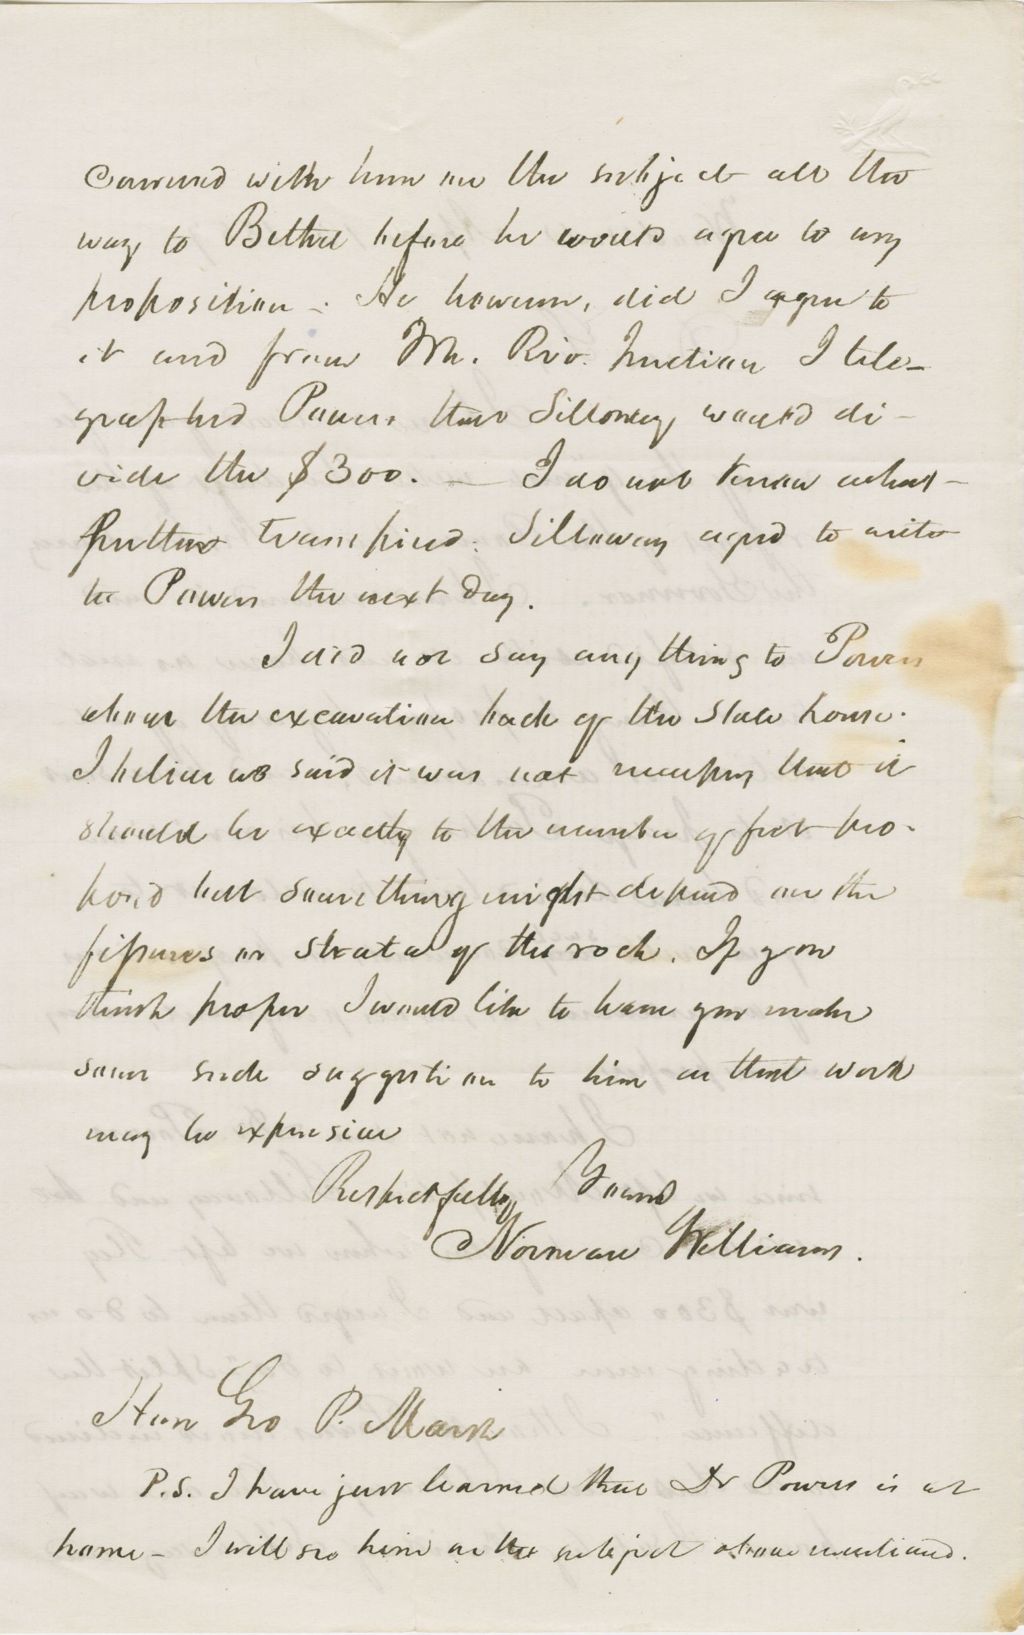 conversed with him on the subject all the
way to Bethel before he would agree to any
proposition - He however, did I agree to
it and from Wh. Riv. Junction I tele-
graphed Powers that Silloway would di-
vide the $300. — I do not know what
further transpired. Silloway agred to write
to Powers the next day.
I did not say any thing to Powers
about the excavation back of the State house.
I believe we said it was not necessary that it
should be exactly to the number of feet pro-
posed but something might depend on the
fissures or strata of the rock. If you
think proper I would like to have you make
some such suggestion to him as that work
may be expensive
Respectfully Yours
Norman Williams.
Hon Geo P. Marsh
P.S. I have just learned that Dr Powers is at
home - I will see him on the subject above mentioned.